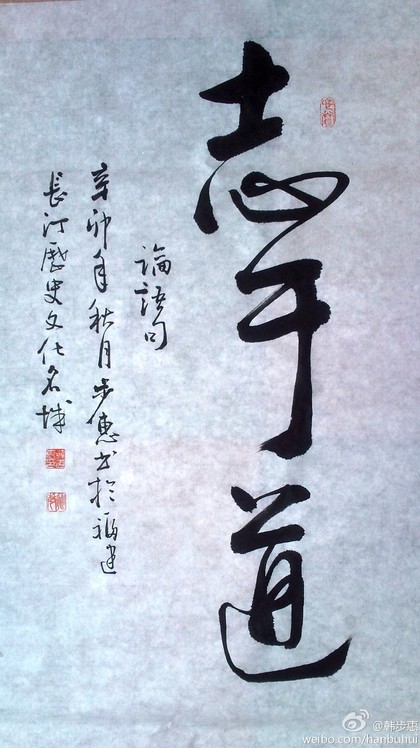 志于道
論語句
辛卯年秋月步惠书於福建
長汀歷史文化名城
@韩步惠
weibo.com/hanbuhui